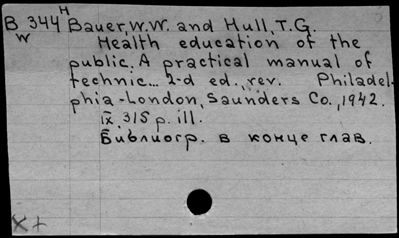 B 344 H Bauer, W.W. and Hull, T.G.
W Health education of the
public. A practical manual of
technic... 2-d ed., rev. Philadel-
phia-London, Saunders Co., 1942.
IX, 315 p. ill.
Библиогр. в конце глав.
X+